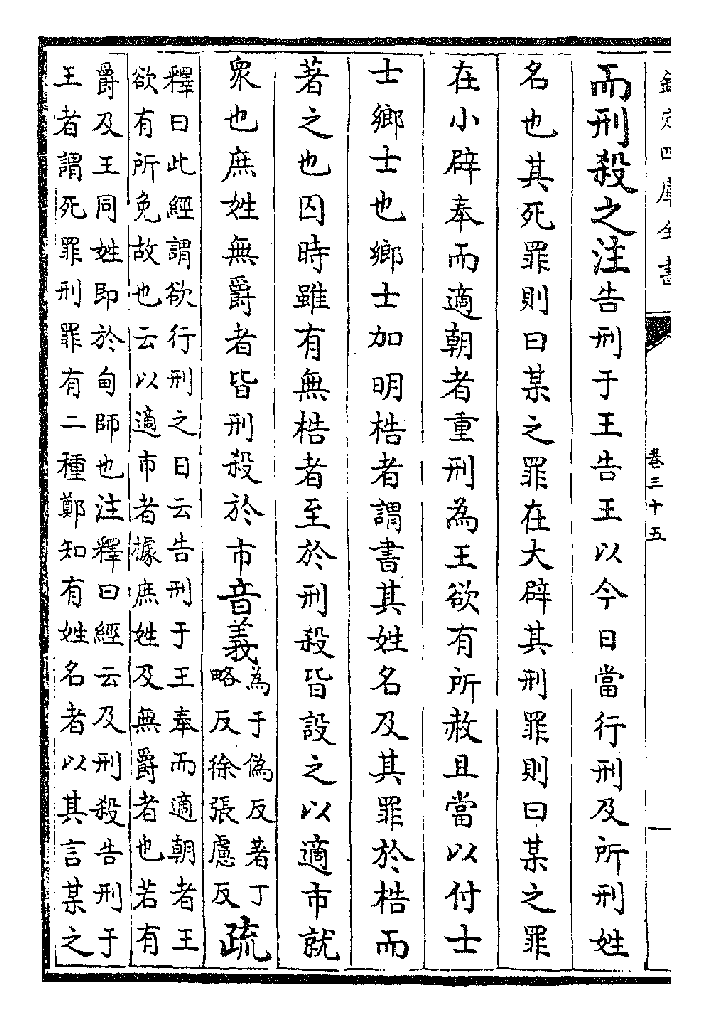 欽定四庫全書
卷三十五
而刑殺之注告刑于王告王以今日當行刑及所刑姓
名也其死罪則曰某之罪在大辟其刑罪則曰某之罪
在小辟奉而適朝者重刑為王欲有所赦且當以付士
士鄉士也鄉士加明梏者謂書其姓名及其罪於梏而
著之也囚時雖有無梏者至於刑殺皆設之以適市就
衆也庶姓無爵者皆刑殺於市音義為于偽反著丁
略反徐張慮反疏
釋曰此經謂欲行刑之日云告刑于王奉而適朝者王
欲有所免故也云以適市者據庶姓及無爵者也若有
爵及王同姓即於甸師也注釋曰經云及刑殺告刑于
王者謂死罪刑罪有二種鄭知有姓名者以其言某之